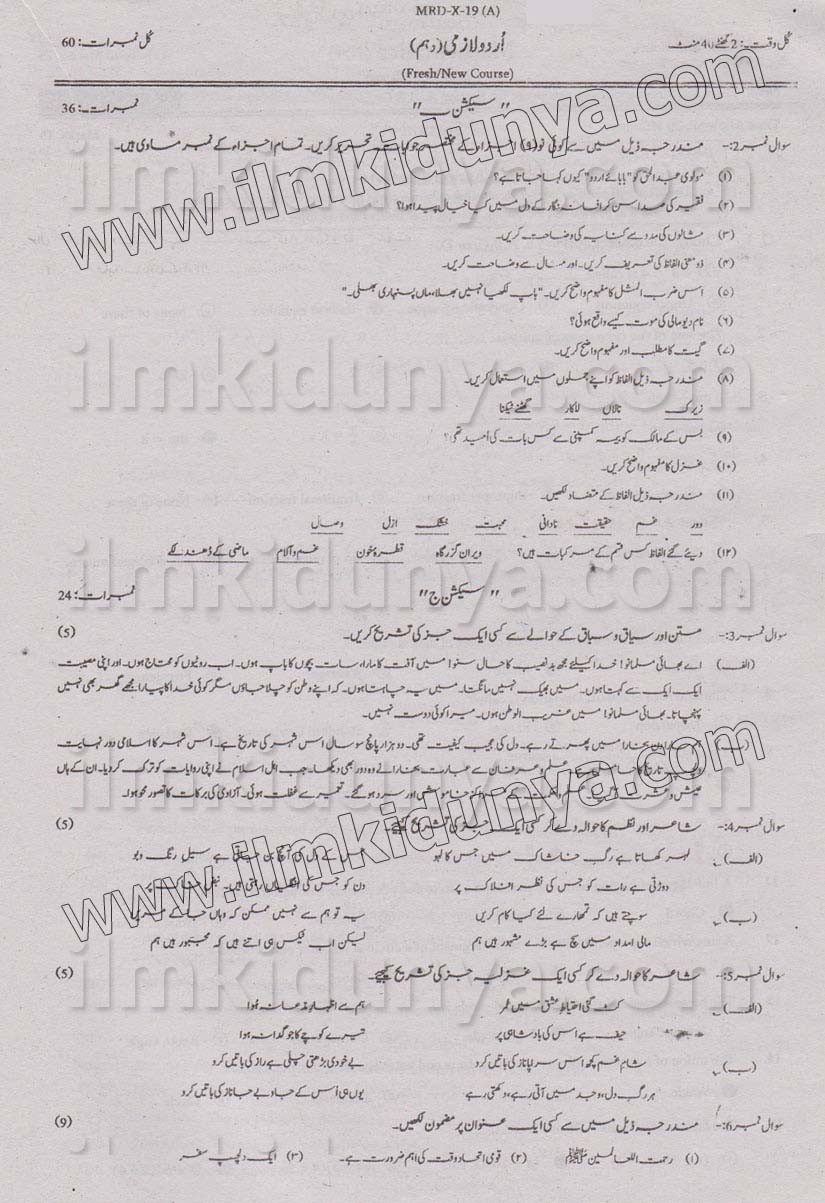 MRD-X-19 (A)
کل وقت: 2 گھنٹے 40 منٹ
اُردو لازمی (دہم)
کل نمبرات: 60
(Fresh/New Course)
"سیکشن ب"
نمبرات: 36
سوال نمبر2:- مندرجہ ذیل میں سے کوئی نو (9) اجزاء کے مختصر جوابات تحریر کریں۔ تمام اجزاء کے نمبر مساوی ہیں۔
(۱) مولوی عبدالحق کو "بابائے اردو" کیوں کہا جاتا ہے؟
(۲) فقیر کی صدا سن کر افسانہ نگار کے دل میں کیا خیال پیدا ہوا؟
(۳) مثالوں کی مدد سے کنایہ کی وضاحت کریں۔
(۴) ذو معنی الفاظ کی تعریف کریں۔ اور مثال سے وضاحت کریں۔
(۵) اس ضرب المثل کا مفہوم واضح کریں۔ "باپ لکھیا نہیں بھلا، ماں پنہاری بھلی۔"
(۶) نام دیو مالی کی موت کیسے واقع ہوئی؟
(۷) گیت کا مطلب اور مفہوم واضح کریں۔
(۸) مندرجہ ذیل الفاظ کو اپنے جملوں میں استعمال کریں۔
زیرک نالاں للکار گھٹنے ٹیکنا
(۹) بس کے مالک کو بیمہ کمپنی سے کس بات کی اُمید تھی؟
(۱۰) غزل کا مفہوم واضح کریں۔
(۱۱) مندرجہ ذیل الفاظ کے متضاد لکھیں۔
دور غم حقیقت نادانی محبت خشک ازل وصال
(۱۲) دیئے گئے الفاظ کس قسم کے مرکبات ہیں؟ ویران گزرگاہ قطرۂ خون غم و آلام ماضی کے دُھندلکے
"سیکشن ج"
نمبرات: 24
سوال نمبر3:- متن اور سیاق و سباق کے حوالے سے کسی ایک جز کی تشریح کریں۔ (5)
(الف) اے بھائی مسلمانو! خدا کیلئے مجھ بدنصیب کا حال سنو! میں آفت کا مارا، سات بچوں کا باپ ہوں۔ اب روٹیوں کو محتاج ہوں۔ اور اپنی مصیبت
ایک ایک سے کہتا ہوں۔ میں بھیک نہیں مانگتا۔ میں یہ چاہتا ہوں۔ کہ اپنے وطن کو چلا جاؤں مگر کوئی خدا کا پیارا مجھے گھر بھی نہیں
پہنچاتا۔ بھائی مسلمانو! میں غریب الوطن ہوں۔ میرا کوئی دوست نہیں۔
(ب) ہم سارا دن بخارا میں پھرتے رہے۔ دل کی عجیب کیفیت تھی۔ دو ہزار پانچ سو سال اس شہر کی تاریخ ہے۔ اس شہر کا اسلامی دور نہایت
تاریخ کا علم و عرفان سے عبارت بخارا نے وہ دور بھی دیکھا۔ جب اہل اسلام نے اپنی روایات کو ترک کر دیا۔ ان کے ہاں
عیش و عشرت مراکز خاموش اور سرد ہو گئے۔ تعمیر سے غفلت ہوئی۔ آزادی کی برکات کا تصور محو ہوا۔
سوال نمبر4:- شاعر اور نظم کا حوالہ دے کر کسی ایک جز کی تشریح کیجئے۔ (5)
(الف) لہر کھاتا ہے رگِ خاشاک میں جس کا لہو جس کے دل کی آنچ بن جاتی ہے سیلِ رنگ و بو
دوڑتی ہے رات کو جس کی نظر افلاک پر دن کو جس کی انگلیاں رہتی ہیں نبضِ خاک پر
(ب) سوچتے ہیں کہ تمھارے لئے کیا کام کریں یہ تو ہم سے نہیں ممکن کہ وہاں جا کے مریں
مالی امداد میں سچ ہے بڑے مشہور ہیں ہم لیکن اب ٹیکس ہی اتنے ہیں کہ مجبور ہیں ہم
سوال نمبر5:- شاعر کا حوالہ دے کر کسی ایک غزلیہ جز کی تشریح کیجئے۔ (5)
(الف) کٹ گئی احتیاطِ عشق میں عمر ہم سے اظہارِ مدعا نہ ہُوا
حیف ہے اس کی بادشاہی پر تیرے کوچے کا جو گدا نہ ہوا
(ب) شامِ غم کچھ اس سراپا ناز کی باتیں کرو بے خودی بڑھتی چلی ہے راز کی باتیں کرو
ہر رگِ دل، وجد میں آتی رہے، دکھتی رہے یوں ہی اُس کے جا و بے جا ناز کی باتیں کرو
سوال نمبر6:- مندرجہ ذیل میں سے کسی ایک عنوان پر مضمون لکھیں۔ (9)
(۱) رحمت اللعالمین ﷺ (۲) قومی اتحاد وقت کی اہم ضرورت ہے۔ (۳) ایک دلچسپ سفر
www.ilmkidunya.com
ilmkidunya.com
ilmkidunya.com
www.ilmkidunya.com
ilmkidunya.com
ilmkidunya.com
ilmkidunya.com